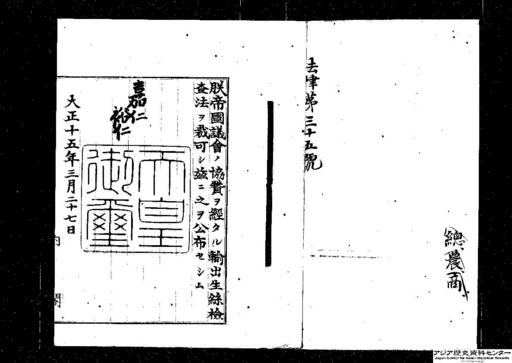 法律第三十五號
總農商
朕帝國議會ノ協贊ヲ經タル輸出生絲檢
査法ヲ裁可シ茲ニ之ヲ公布セシム
嘉仁
裕仁
天皇御璽
大正十五年三月二十七日
内閣
アジア歴史資料センター
Japan Center for Asian Historical Records